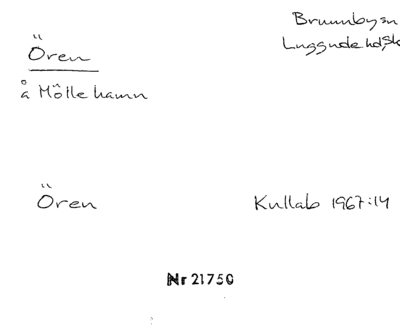 Ören
Brunnbysn
Luggude hd, Sk
å Mölle hamn
Ören
Kullab 1967:14
Nr 21750